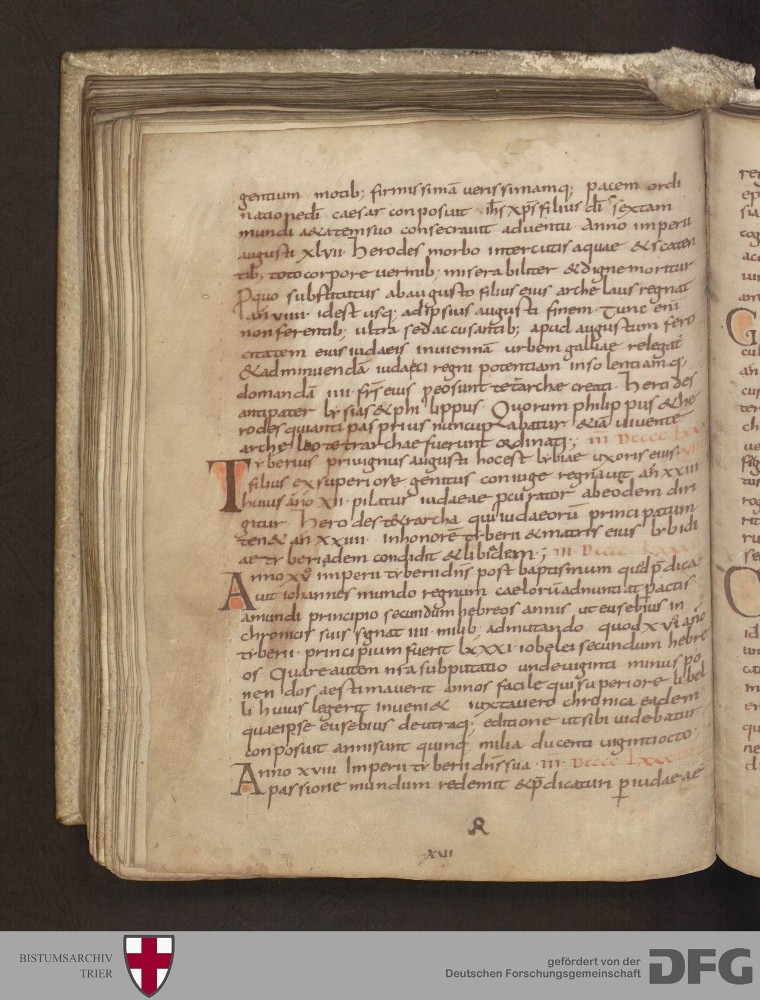 gentium motib; firmissimā verissimamq; pacem ordi
natione dī caesar conposuit ihs xps filius dī sextam
mundi aetatem suo consecravit adventu. Anno imperii
augusti xlvii. Herodes morbo intercutis aquae & scaten
tib; toto corpore vermib; miserabiliter & digne moritur
Pquo substitutus ab augusto filius eius archelaus regnat
an viiii. id est usq; ad ipsius augusti finem. Tunc eni
non ferentib; ultra sed accusantib; apud augustum fero
citatem eius iudaeis in viennā urbem galliae relegat
& ad minuendā iudaici regni potentiam insolentiamq;
domandā iiii frs eius peo sunt tetrarchae creati. Herodes
antipater lysias & philippus. Quorum philippus & he
rodes qui antipas prius nuncupabatur &iā vivente
archelao tetrarchae fuerunt ordinati; iii Dcccc lxx
Tyberius privignus augusti hoc est lybiae uxoris eius
filius ex superiore genitus coniuge regnavit an xxiii
huius anno xii. pilatus iudaeae pcurator ab eodem diri
gitur. Herodes tetrarcha qui iudaeorū principatum
tenet an xxiiii. in honorē tyberii & matris eius lybidi
ae tyberiadem condidit & libidem; iii Dcccc
Anno xv imperii tyberii dns post baptismum quod pdica
vit iohannes mundo regnum caelorū adnuntiat pactis
a mundi principio secundum hebreos annis ut eusebius in
chronicis suis signat iiii milib; adnotando quod xvi anno
tyberii principium fuerit lxxxi iobelei secundum hebre
os Quare autem nra subputatio undeviginti minus po
nendos aestimaverit annos facile qui superiore libel
li huius legerit inveniet iuxta vero chronica eadem
quae ipse eusebius de utraq; editione ut sibi videbatur
conposuit anni sunt quinq; milia ducenti viginti octo.
Anno xviii Imperii tyberii dns sua iii Dcccc lxx
passione mundum redemit & pdicaturi p iudaeae
xvii
G
C
BISTUMSARCHIV
TRIER
gefördert von der
Deutschen Forschungsgemeinschaft
DFG